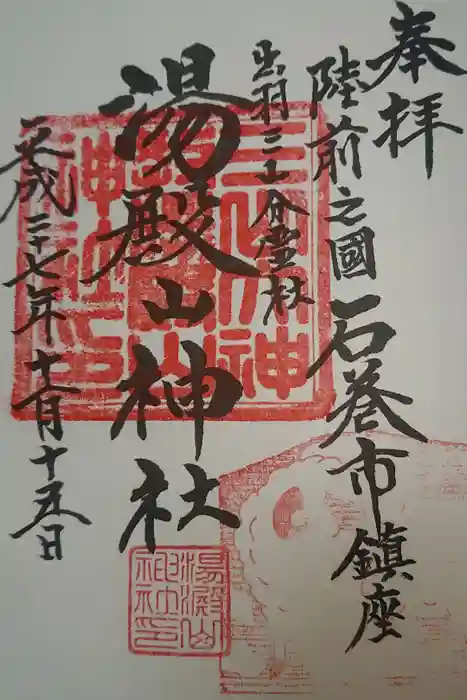 奉拝
陸前之國 石巻市鎮座
出羽三山分霊社
湯殿山神社
平成二十七年十一月十五日